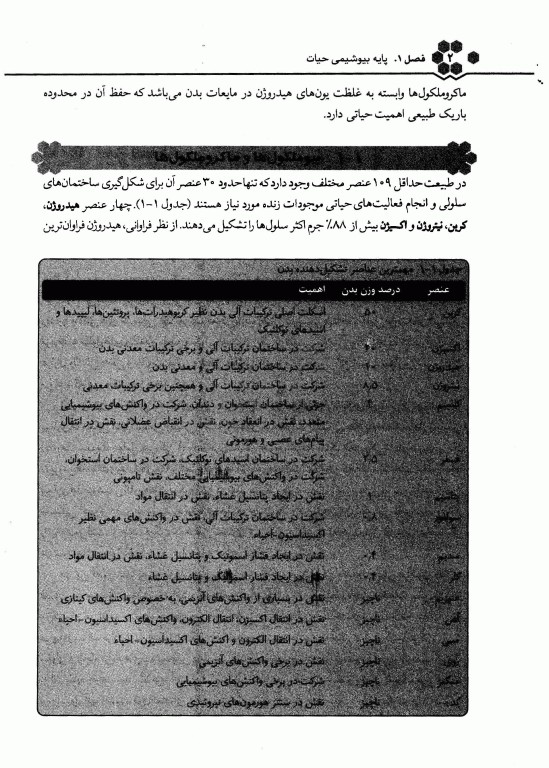 ۲ فصل ۱. پایه بیوشیمی حیات
ماکروملکول‌ها وابسته به غلظت یون‌های هیدروژن در مایعات بدن می‌باشد که حفظ آن در محدوده
باریک طبیعی اهمیت حیاتی دارد.
۱-۱ بیوملکول‌ها و ماکروملکول‌ها
در طبیعت حداقل ۱۰۹ عنصر مختلف وجود دارد که تنها حدود ۳۰ عنصر آن برای شکل‌گیری ساختمان‌های
سلولی و انجام فعالیت‌های حیاتی موجودات زنده مورد نیاز هستند (جدول ۱-۱). چهار عنصر هیدروژن،
کربن، نیتروژن و اکسیژن بیش از ۸۸٪ جرم اکثر سلول‌ها را تشکیل می‌دهند. از نظر فراوانی، هیدروژن فراوان‌ترین
جدول ۱-۱. مهمترین عناصر تشکیل‌دهنده بدن
عنصر درصد وزن بدن اهمیت
کربن ۵۰ اسکلت اصلی ترکیبات آلی بدن نظیر کربوهیدرات‌ها، پروتئین‌ها، لیپیدها و
اسیدهای نوکلئیک
اکسیژن شرکت در ساختمان ترکیبات آلی و برخی ترکیبات معدنی بدن
هیدروژن ۱۰ شرکت در ساختمان ترکیبات آلی و معدنی بدن
نیتروژن ۸٫۵ شرکت در ساختمان ترکیبات آلی و همچنین برخی ترکیبات معدنی
کلسیم جزئی از ساختمان استخوان و دندان، شرکت در واکنش‌های بیوشیمیایی
متعدد، نقش در انعقاد خون، نقش در انقباض عضلانی، نقش در انتقال
پیام‌های عصبی و هورمونی
فسفر ۲٫۵ شرکت در ساختمان اسیدهای نوکلئیک، شرکت در ساختمان استخوان،
شرکت در واکنش‌های بیوشیمیایی مختلف، نقش تامپونی
پتاسیم ۱ نقش در ایجاد پتانسیل غشاء، نقش در انتقال مواد
سولفور ۰٫۸ شرکت در ساختمان ترکیبات آلی، نقش در واکنش‌های مهمی نظیر
اکسیداسیون-احیاء
سدیم ۰٫۴ نقش در ایجاد فشار اسموتیک و پتانسیل غشاء، نقش در انتقال مواد
کلر ۰٫۴ نقش در ایجاد فشار اسموتیک و پتانسیل غشاء
منیزیم ناچیز نقش در بسیاری از واکنش‌های آنزیمی، به خصوص واکنش‌های کینازی
آهن ناچیز نقش در انتقال اکسیژن، انتقال الکترون، واکنش‌های اکسیداسیون-احیاء
مس ناچیز نقش در انتقال الکترون و اکنش‌های اکسیداسیون-احیاء
روی ناچیز نقش در برخی واکنش‌های آنزیمی
منگنز ناچیز شرکت در برخی واکنش‌های بیوشیمیایی
ید ناچیز نقش در سنتز هورمون‌های تیروئیدی